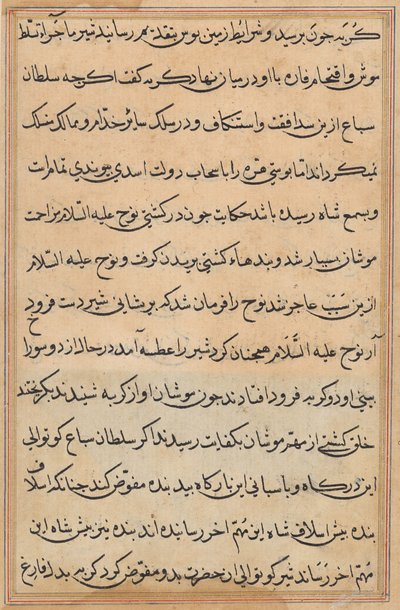 گربه چون برسید و شرایط زمین بوس بتقدیم رسانید شیر ماجرا تسلط
موش و اقتحام فاره با او در میان نهاد گربه گفت اگرچه سلطان
سباع ازین سدافقت واستنکاف و در سلک سایر خدام و ممالک منسلک
نمیگرداند اما بوستی قره را با سحاب دولت اسدی پیوندی تمامرات
و بسمع شاه رسیده باشد حکایت چون در کشتی نوح علیه السلام مزاحمت
موشان بسیار شد و بندهاء کشتی بریدن گرفت و نوح علیه السلام
ازین سبب عاجز شد نوح را فرمان شد که بر پیشانی شیر دست فرود
آر نوح علیه السلام همچنان کرد شیر را عطسه آمد در حال از دو سوراخ
بینی او دو گربه فرود افتادند چون موشان اواز گربه شنیدند بگریختند
خلق کشتی از مهم موشان بکفایت رسیدند اگر سلطان سباع کوتوالی
این درگاه و پاسبانی این بارگاه بدین بنده مفوض کند چنانکه اسلاف
بنده پیش اسلاف شاه این مهم اخر رسانیده اند بنده نیز پیش شاه این
مهم اخر رساند شیر کوتوالی ان حضرت بدو مفوض کرد گربه بدل فارغ